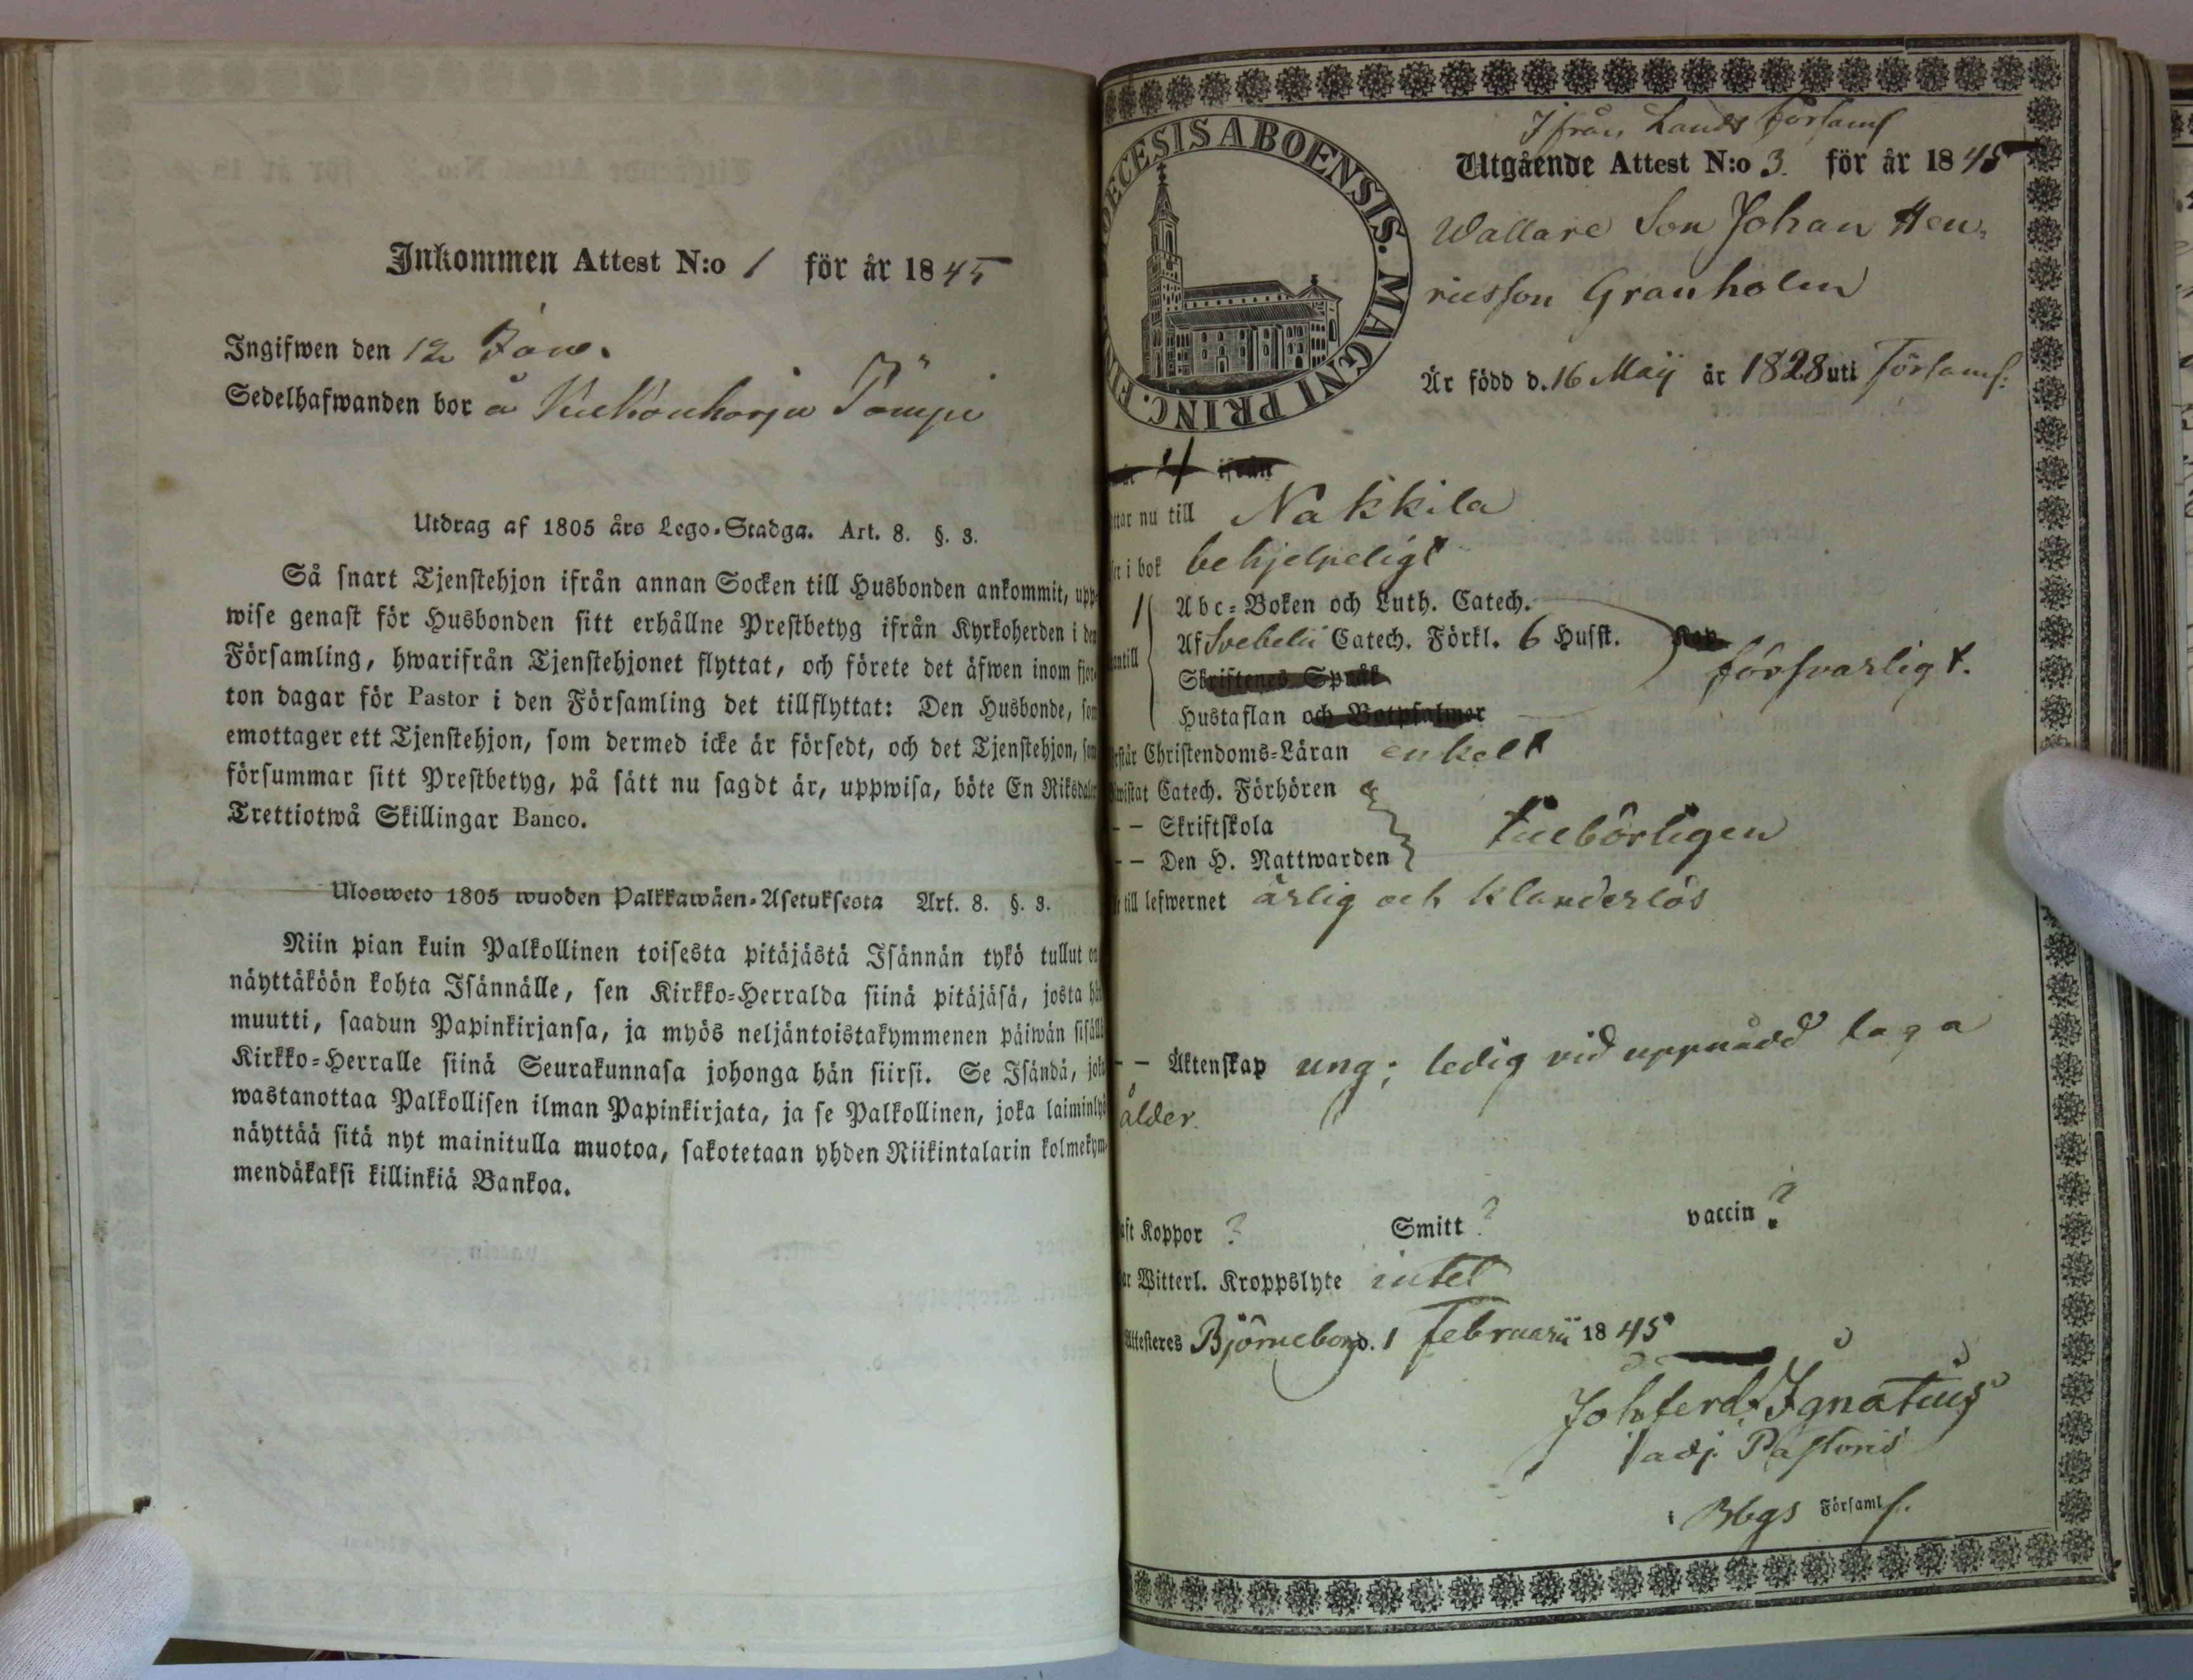 Inkommen Attest N:o 1 för år 1845
Ingifwen den 12 Janu.
Sedelhafwanden bor å
Utdrag af 1805 års Lego-Stadga. Art. 8. §. 3.
Så snart Tjenstehjon ifrån annan Socken till Husbonden ankommit, upp-
wise genast för Husbonden sitt erhållne Prestbetyg ifrån Kyrkoherden i den
Församling, hwarifrån Tjenstehjonet flyttat, och förete det äfwen inom fjor-
ton dagar för Pastor i den Församling det tillflyttat: Den Husbonde, som
emottager ett Tjenstehjon, som dermed icke är försedt, och det Tjenstehjon, som
försummar sitt Prestbetyg, på sätt nu sagdt är, uppwisa, böte En Riksdaler
Trettiotwå Skillingar Banco.
Ulosweto 1805 wuoden Palkkawäen-Asetuksesta Art. 8. §. 3.
Niin pian kuin Palkollinen toisesta pitäjästä Isännän tykö tullut on
näyttäköön kohta Isännälle, sen Kirkko-Herralda siinä pitäjäsä, josta hän
muutti, saadun Papinkirjansa, ja myös neljäntoistakymmenen päiwän sisällä
Kirkko-Herralle siinä Seurakunnasa johonga hän siirsi. Se Isändä, joka
wastanottaa Palkollisen ilman Papinkirjata, ja se Palkollinen, joka laiminlyö
näyttää sitä nyt mainitulla muotoa, sakotetaan yhden Riikintalarin kolmekym-
mendäkaksi killinkiä Bankoa.
DIOECESIS ABOENSIS. MAGNI PRINC. FINL
Ifrån Lands Forsaml
Utgående Attest N:o 3. för år 1845
Wallare Son Johan Hen-
ricsson Granholm
Är född d. 16 Maÿ år 1828 uti Församl:
ifrån
ttar nu till Nakkila
er i bok behjelpeligt
Abc-Boken och Luth. Catech.
Af Svebelii Catech. Förkl. 6 Husst.
antill
Skriftenes Språk
försvarligt.
Hustaflan och Botpsalmer
rstår Christendoms-Läran enkelt
wistat Catech. Förhören
-- Skriftskola
tillbörligen
-- Den H. Nattwarden
till lefwernet ärlig och klanderlös
-- Äktenskap ung; ledig vid uppnådd laga
ålder.
aft Koppor ? Smitt ? vaccin ?
ar Witterl. Kroppslyte intet
Attesteres Björneborg d. 1 Februarii 1845
Joh ferd. Ignatius
adj. Pastoris
i Bbgs Församl f.